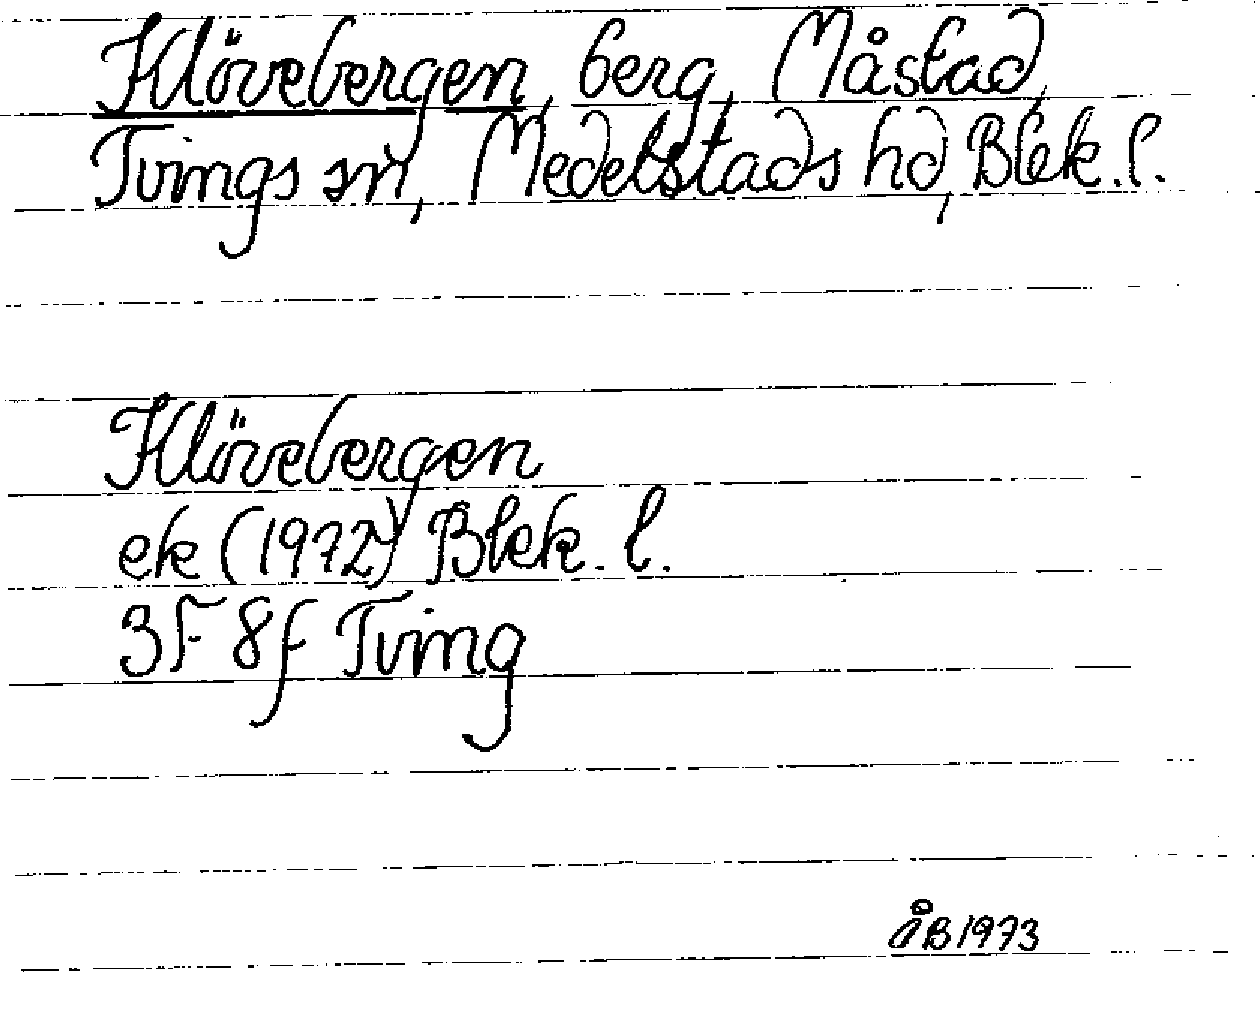 Klövebergen, berg, Måstad,
Tvings sn, Medelstads hd, Blek. l.
Klövebergen
ek (1972) Blek. l.
3F 8f Tving
ÅB 1973